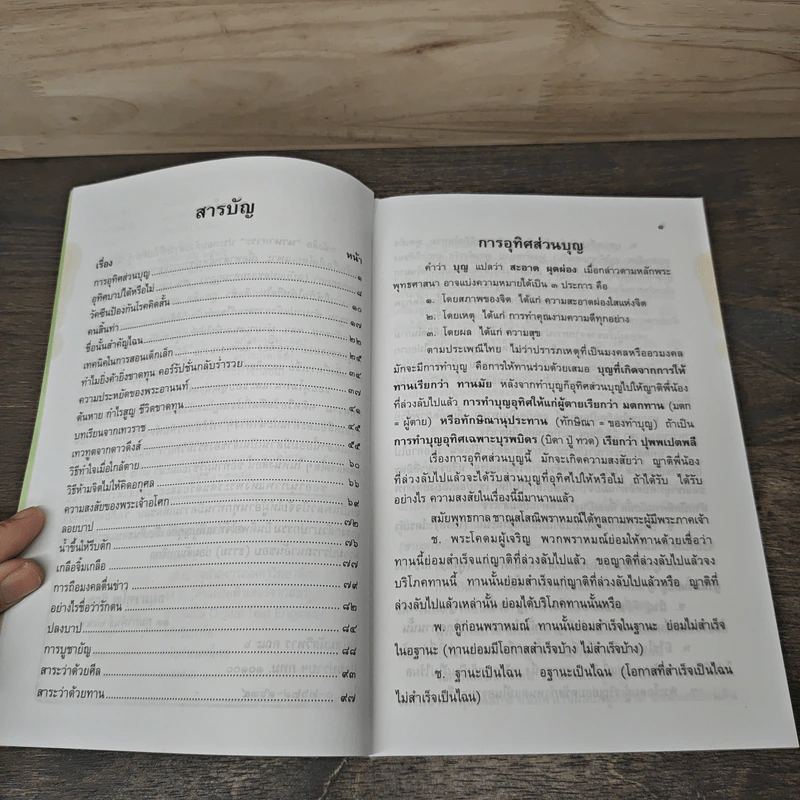 สารบัญ
เรื่อง หน้า
การอุทิศส่วนบุญ ๑
อุทิศบาปได้หรือไม่ ๘
วัคซีนป้องกันโรคคิดสั้น ๑๐
คนสิ้นท่า ๑๗
ชื่อนั้นสำคัญไฉน ๒๒
เทคนิคในการสอนเด็กเล็ก ๒๕
ทำไมยิ่งค้ายิ่งขาดทุน คอร์รัปชั่นกลับร่ำรวย ๓๔
ความประหยัดของพระอานนท์ ๓๗
ต้นหาย กำไรสูญ ชีวิตขาดทุน ๔๑
บทเรียนจากเทวราช ๔๕
เทวทูตจากดาวดึงส์ ๕๕
วิธีทำใจเมื่อใกล้ตาย ๖๐
วิธีห้ามจิตไม่ให้คิดอกุศล ๖๖
ความสงสัยของพระเจ้าอโศก ๖๙
ลอยบาป ๗๒
น้ำขึ้นให้รีบตัก ๗๖
เกลือจิ้มเกลือ ๗๗
การถือมงคลตื่นข่าว ๗๙
อย่างไรชื่อว่ารักตน ๘๒
ปลงบาป ๘๔
การบูชายัญ ๘๘
สาระว่าด้วยศีล ๙๓
สาระว่าด้วยทาน ๙๗
๑
การอุทิศส่วนบุญ
คำว่า บุญ แปลว่า สะอาด ผุดผ่อง เมื่อกล่าวตามหลักพระ
พุทธศาสนา อาจแบ่งความหมายได้เป็น ๓ ประการ คือ
๑. โดยสภาพของจิต ได้แก่ ความสะอาดผ่องใสแห่งจิต
๒. โดยเหตุ ได้แก่ การทำคุณงามความดีทุกอย่าง
๓. โดยผล ได้แก่ ความสุข
ตามประเพณีไทย ไม่ว่าปรารภเหตุที่เป็นมงคลหรืออวมงคล
มักจะมีการทำบุญ คือการให้ทานร่วมด้วยเสมอ บุญที่เกิดจากการให้
ทานเรียกว่า ทานมัย หลังจากทำบุญก็อุทิศส่วนบุญไปให้ญาติพี่น้อง
ที่ล่วงลับไปแล้ว การทำบุญอุทิศให้แก่ผู้ตายเรียกว่า มตกทาน (มตก
= ผู้ตาย) หรือทักษิณานุประทาน (ทักษิณา = ของทำบุญ) ถ้าเป็น
การทำบุญอุทิศเฉพาะบุรพบิดร (บิดา ปู่ ทวด) เรียกว่า ปุพพเปตพลี
เรื่องการอุทิศส่วนบุญนี้ มักจะเกิดความสงสัยว่า ญาติพี่น้อง
ที่ล่วงลับไปแล้วจะได้รับส่วนบุญที่อุทิศไปให้หรือไม่ ถ้าได้รับ ได้รับ
อย่างไร ความสงสัยในเรื่องนี้มีมานานแล้ว
สมัยพุทธกาล ชาณุสโสณิพราหมณ์ได้ทูลถามพระผู้มีพระภาคเจ้า
ช. พระโคดมผู้เจริญ พวกพราหมณ์ย่อมให้ทานด้วยเชื่อว่า
ทานนี้ย่อมสำเร็จแก่ญาติที่ล่วงลับไปแล้ว ขอญาติที่ล่วงลับไปแล้วจง
บริโภคทานนี้ ทานนั้นย่อมสำเร็จแก่ญาติที่ล่วงลับไปแล้วหรือ ญาติที่
ล่วงลับไปแล้วเหล่านั้น ย่อมได้บริโภคทานนั้นหรือ
พ. ดูก่อนพราหมณ์ ทานนั้นย่อมสำเร็จในฐานะ ย่อมไม่สำเร็จ
ในอฐานะ (ทานย่อมมีโอกาสสำเร็จบ้าง ไม่สำเร็จบ้าง)
ช. ฐานะเป็นไฉน อฐานะเป็นไฉน (โอกาสที่สำเร็จเป็นไฉน
ไม่สำเร็จเป็นไฉน)